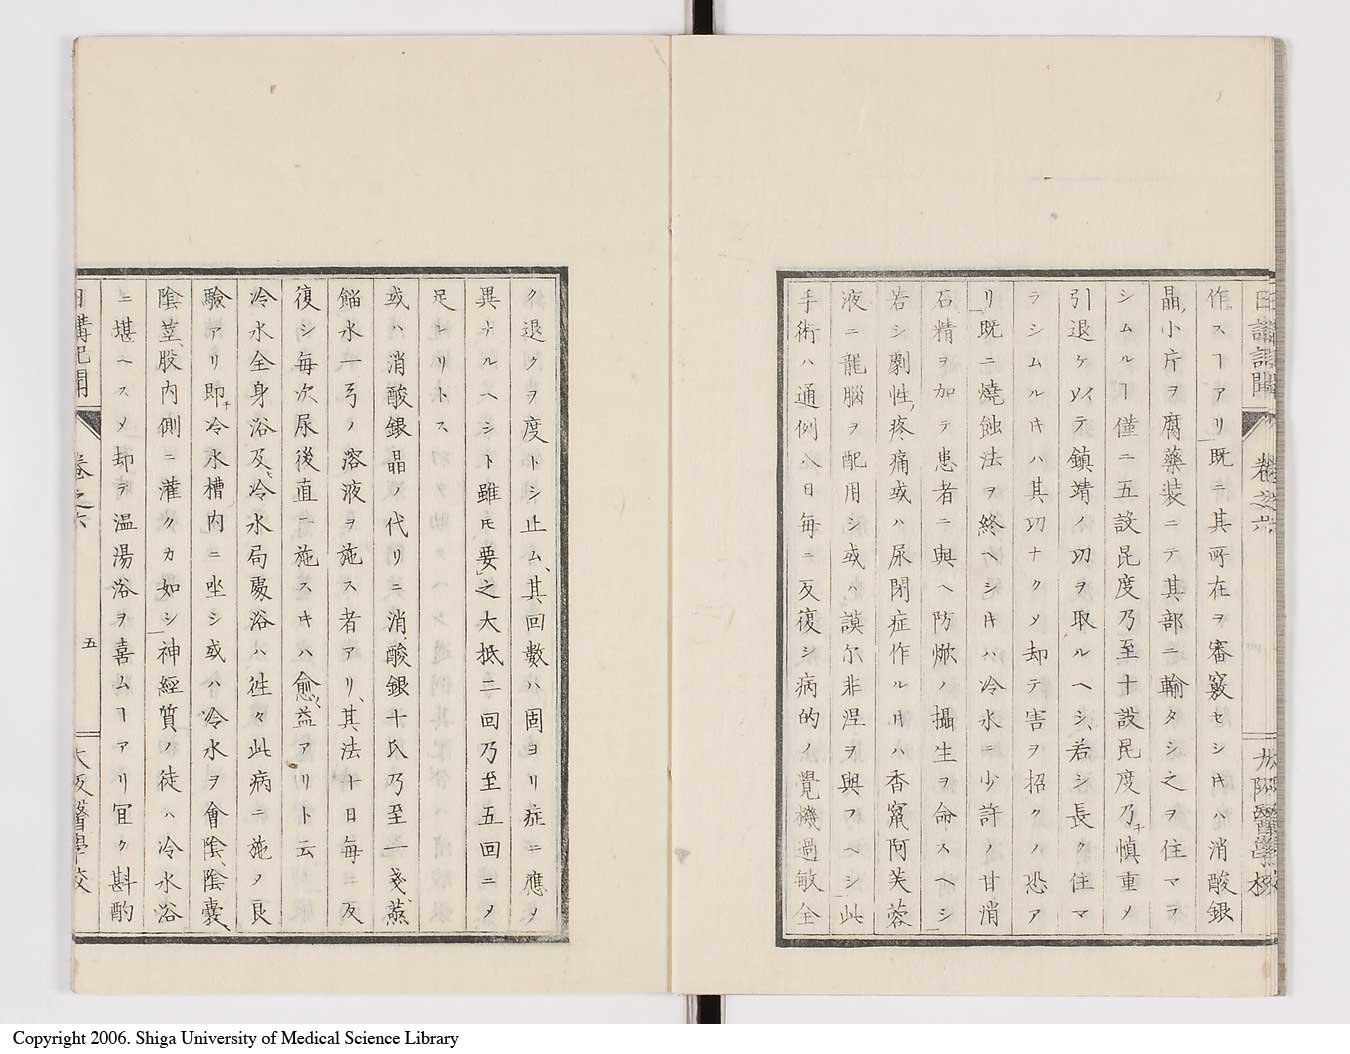 日講記聞 卷之六 大阪醫學校
作スヿアリ既ニ其所在ヲ審竅セシ𪜈ハ消酸銀
晶小片ヲ腐藥装ニテ其部ニ輸タシ之ヲ住マラ
シムルヿ僅ニ五設昆度乃至十設昆度乃チ慎重メ
引退ケツイテ鎮靖ノ功ヲ取ルヘシ若シ長ク住マ
ラシムル𪜈ハ其功ナクメ却テ害ヲ招クノ恐ア
リ既ニ燒蝕法ヲ終ヘシ𪜈ハ冷水ニ少許ノ甘消
石精ヲ加テ患者ニ與ヘ防焮ノ攝生ヲ命スヘシ
若シ劇性疼痛或ハ尿閉症作ル𪜈ハ香竄阿芙蓉
液ニ龍腦ヲ配用シ或ハ謨尔非涅ヲ與フヘシ此
手術ハ通例八日毎ニ反復シ病的ノ覺機過敏全
ク退クヲ度トシ止ム其回數ハ固ヨリ症ニ應メ
異ナルヘシト雖𪜈要之大抵二回乃至五回ニメ
足レリトス
或ハ消酸銀晶ノ代リニ消酸銀十氏乃至一戔蒸
餾水一弓ノ溶液ヲ施ス者アリ其法十日毎ニ反
復シ毎次尿後直ニ施ス𪜈ハ愈益アリト云
冷水全身浴及冷水局處浴ハ徃々此病ニ施メ良
驗アリ即チ冷水槽内ニ坐シ或ハ冷水ヲ會陰陰嚢
陰莖股内側ニ灌クカ如シ神經質ノ徒ハ冷水浴
ニ堪ヘスメ却テ温湯浴ヲ喜ムヿアリ冝ク斟酌
日講記聞 卷之六 五 大阪醫學校
Copyright 2006. Shiga University of Medical Science Library